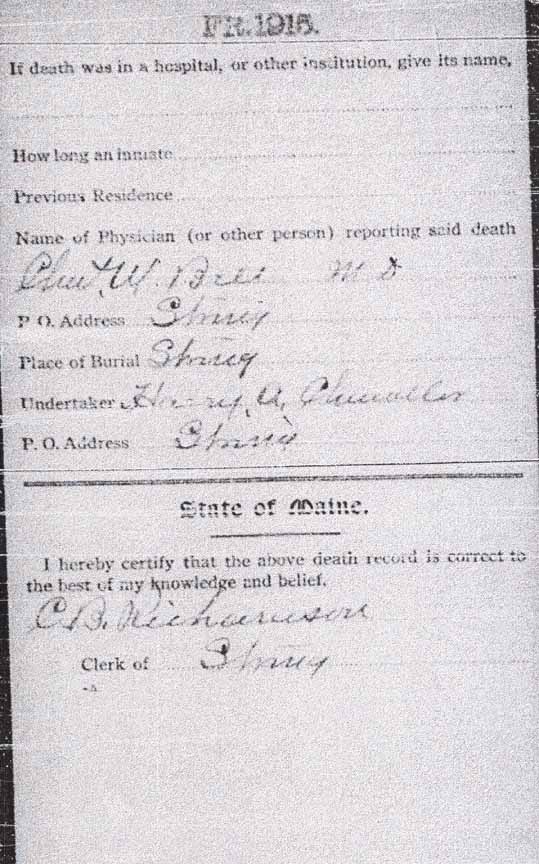 FR. 1915.
If death was in a hospital, or other institution, give its name,
How long an inmate
Previous Residence
Name of Physician (or other person) reporting said death
Chas. W. Bell M D
P. O. Address Strong
Place of Burial Strong
Undertaker Harry A. Chandler
P. O. Address Strong
State of Maine.
I hereby certify that the above death record is correct to
the best of my knowledge and belief.
C. B. Richardson
Clerk of Strong